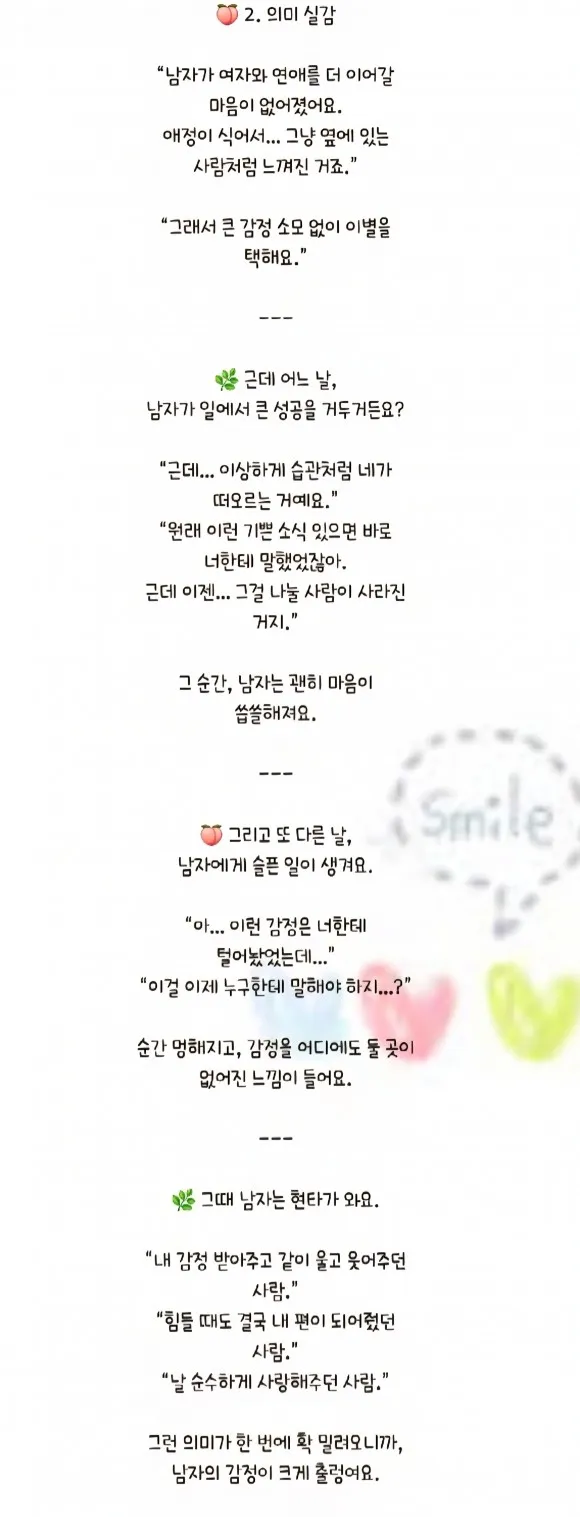 🍑 2. 의미 실감
“남자가 여자와 연애를 더 이어갈
마음이 없어졌어요.
애정이 식어서... 그냥 옆에 있는
사람처럼 느껴진 거죠.”
“그래서 큰 감정 소모 없이 이별을
택해요.”
---
🌿 근데 어느 날,
남자가 일에서 큰 성공을 거두거든요?
“근데... 이상하게 습관처럼 네가
떠오르는 거예요.”
“원래 이런 기쁜 소식 있으면 바로
너한테 말했었잖아.
근데 이젠... 그걸 나눌 사람이 사라진
거지.”
그 순간, 남자는 괜히 마음이
씁쓸해져요.
---
Smile
🍑 그리고 또 다른 날,
남자에게 슬픈 일이 생겨요.
“아... 이런 감정은 너한테
털어놨었는데...”
“이걸 이제 누구한테 말해야 하지...?”
순간 멍해지고, 감정을 어디에도 둘 곳이
없어진 느낌이 들어요.
---
🌿 그때 남자는 현타가 와요.
“내 감정 받아주고 같이 울고 웃어주던
사람.”
“힘들 때도 결국 내 편이 되어줬던
사람.”
“날 순수하게 사랑해주던 사람.”
그런 의미가 한 번에 확 밀려오니까,
남자의 감정이 크게 출렁여요.